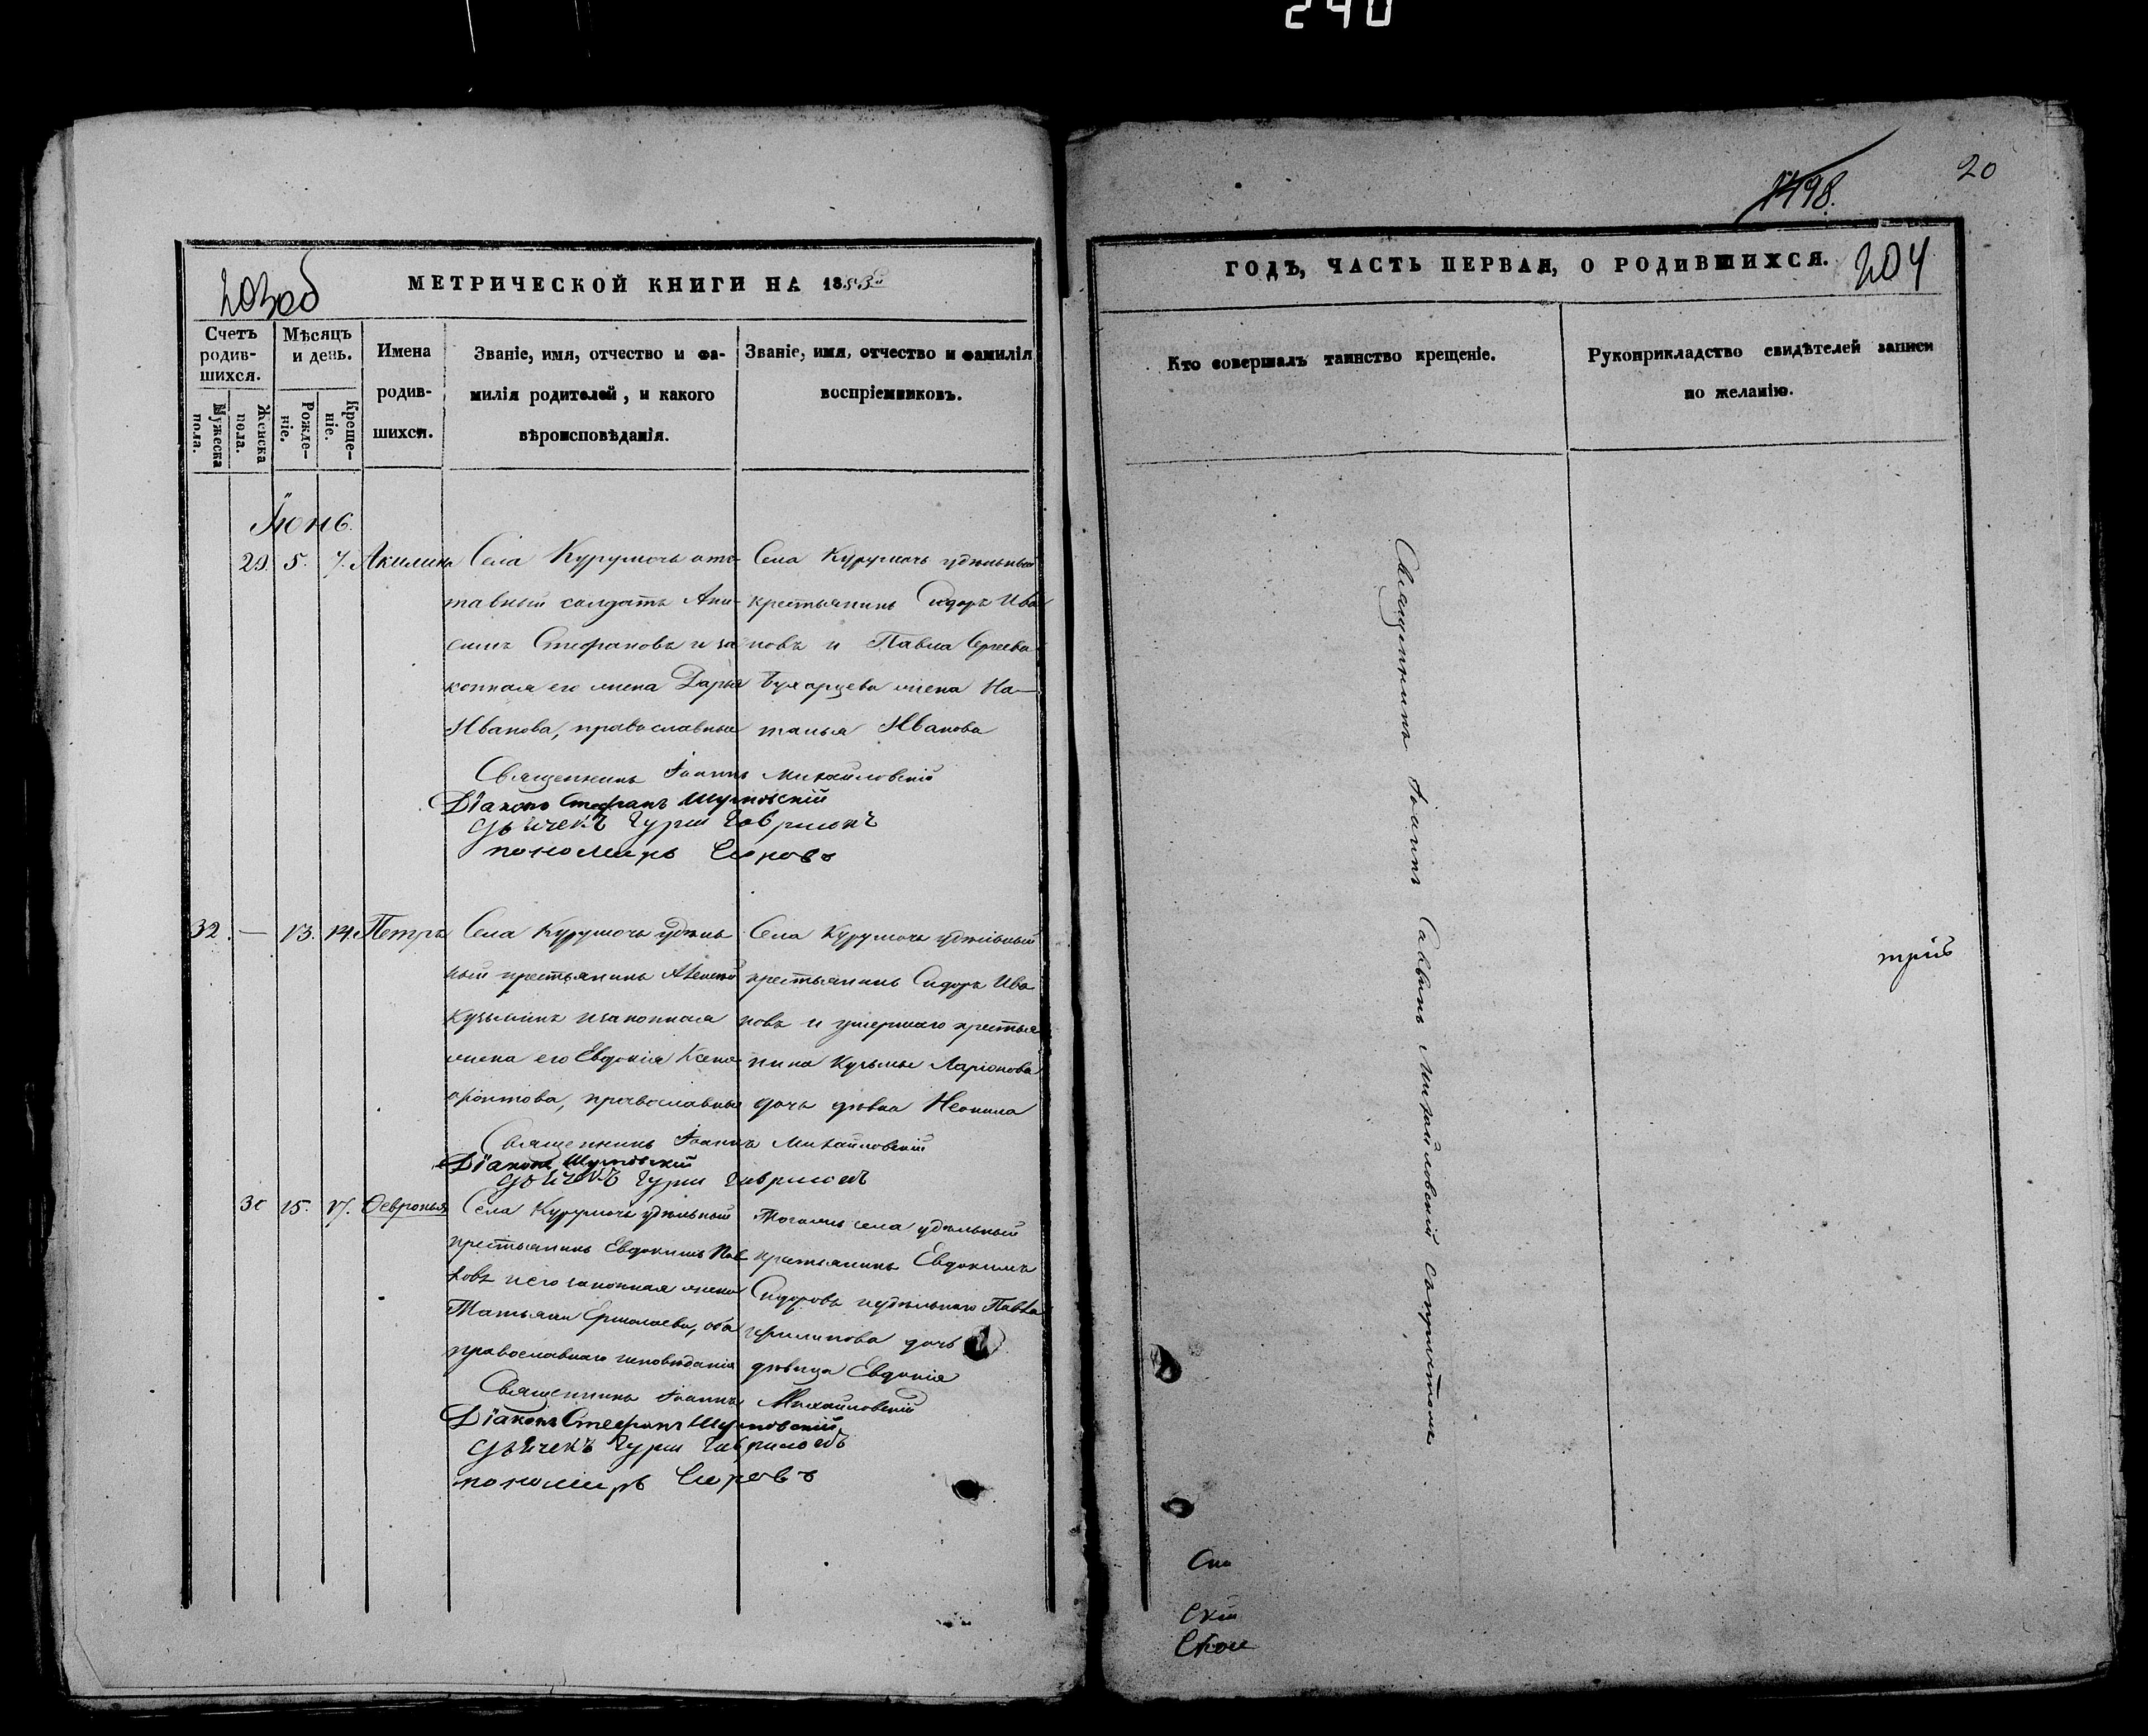 240
20
1498.
203об
МЕТРИЧЕСКОЙ КНИГИ НА 18
Счетъ
родив-
шихся.
Мужеска
пола.
Женска
пола.
Мѣсяцъ
и день.
Рожде-
ніе.
Креще-
ніе.
Имена
родив-
шихся.
Званіе, имя, отчество и фа-
милія родителей, и какого
вѣроисповѣданія.
Званіе, имя, отчество и фамилія
воспріемниковъ.
Іюнь.
29. 5. 7. Акилина
Села Курумочь отс-
тавный солдатъ
Стефановъ и за
конная его жена Дарья
Иванова, православные
Села Курумочь удѣльный
крестьянинъ Сидоръ Ива
новъ и Павла Сергѣева
Бухарцева жена На-
талья Иванова
Священникъ Іоаннъ Михайловскій
Діаконъ Стефанъ
Дьячекъ Гурій Гавриловъ
пономарь
32. — 13. 14. Петръ
Села Курумочь удѣль
ный крестьянинъ Алексѣй
Кузьминъ и законная
жена его Евдокія Ксено
фонтова, православные
Села Курумочь удѣльный
крестьянинъ Сидоръ Ива
новъ и умершаго крестья
нина Кузьмы Ларіонова
дочь дѣвка Неонила
Священникъ Іоаннъ Михайловскій
Діаконъ
Дьячекъ Гурій Гавриловъ
30 15. 17. Февронья
Села Курумочь удѣльный
крестьянинъ Евдокимъ
и его законная жена
Татьяна Ермолаева, оба
православнаго исповѣданія
Тогожъ села удѣльный
крестьянинъ Евдокимъ
Сидоровъ и удѣльнаго Павла
Филипова дочь
дѣвица Евдокія
Священникъ Іоаннъ Михайловскій
Діаконъ Стефанъ
Дьячекъ Гурій Гавриловъ
пономарь
ГОДЪ, ЧАСТЬ ПЕРВАЯ, О РОДИВШИХСЯ.
204
Кто совершалъ таинство крещеніе.
Рукоприкладство свидѣтелей записи
по желанію.
Священникъ Іоаннъ Саввинъ Михайловскій съ причтомъ